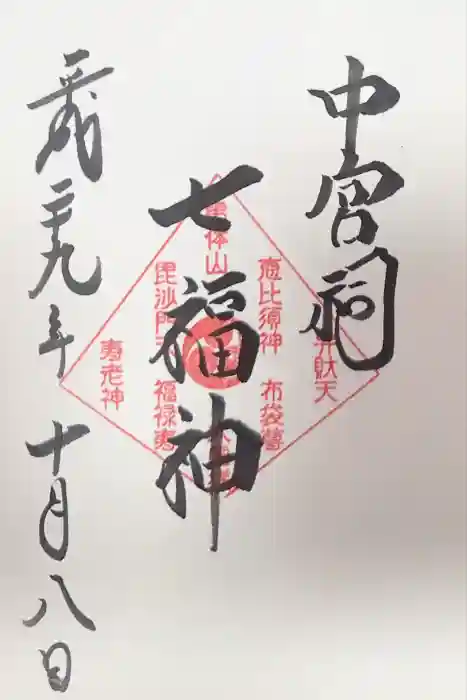 中宮祠
七福神
平成二十九年十月八日
弁財天
恵比須神
布袋尊
男体山
毘沙門天
福禄寿
寿老神